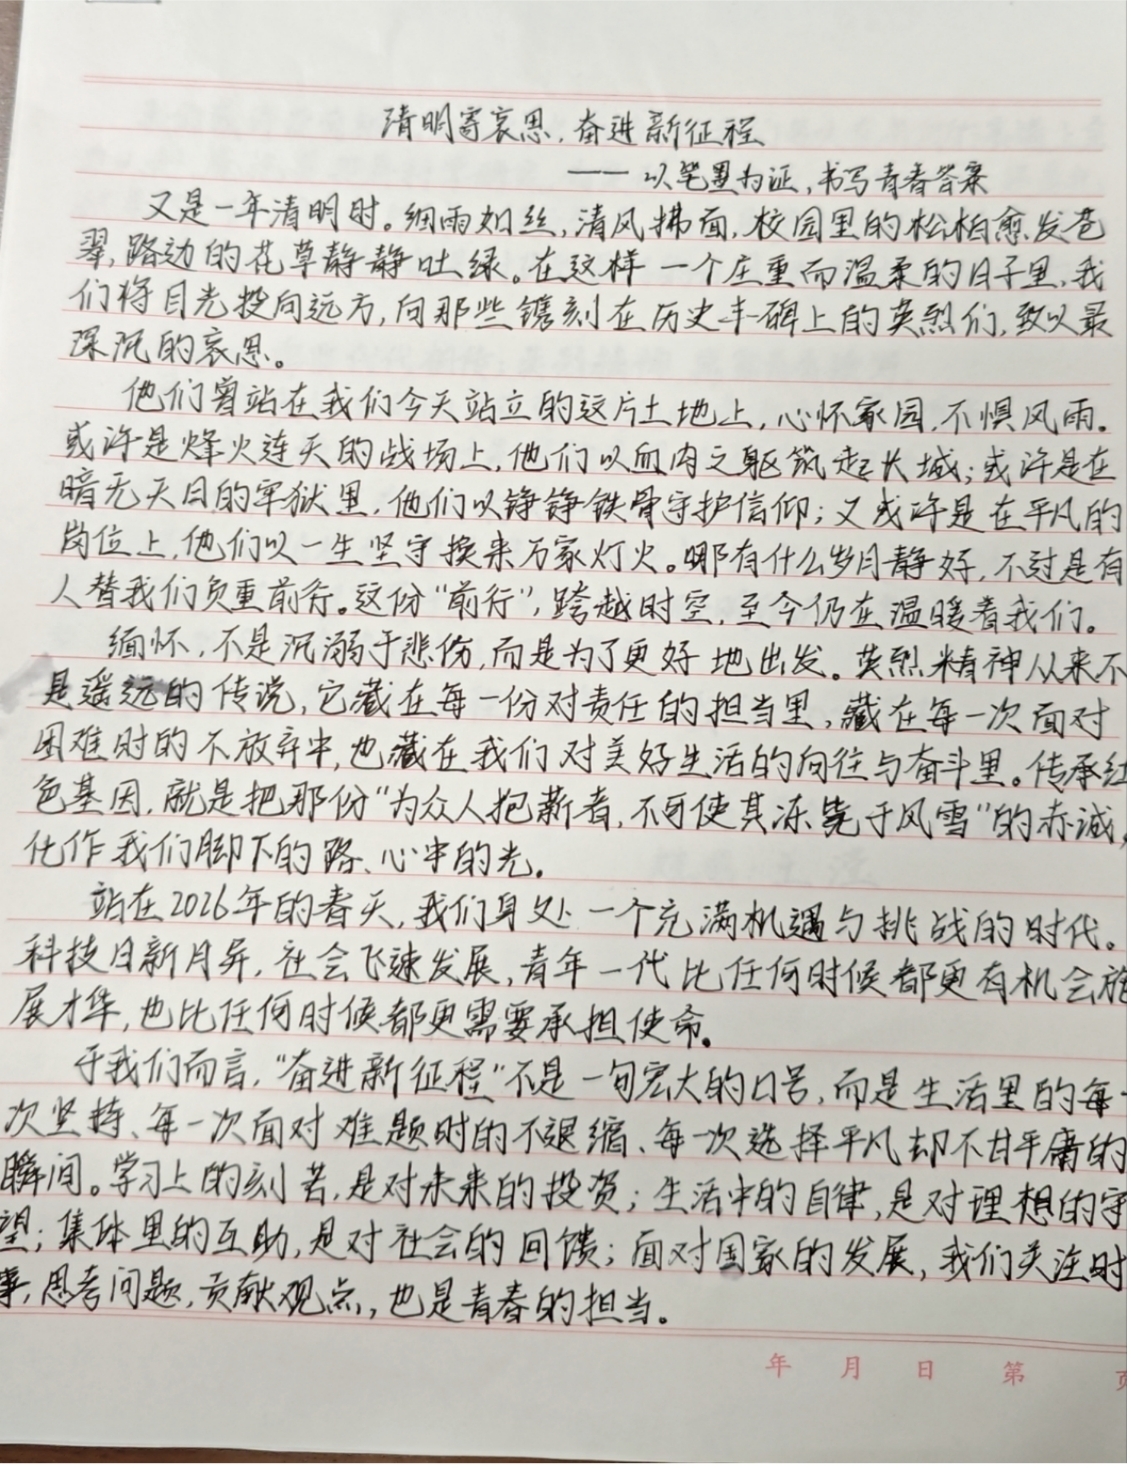 清明寄哀思,奋进新征程
—— 以笔墨为证,书写青春答案
又是一年清明时。细雨如丝,清风拂面,校园里的松柏愈发苍
翠,路边的花草静静吐绿。在这样一个庄重而温柔的日子里,我
们将目光投向远方,向那些镌刻在历史丰碑上的英烈们,致以最
深沉的哀思。
他们曾站在我们今天站立的这片土地上,心怀家园,不惧风雨。
或许是烽火连天的战场上,他们以血肉之躯筑起长城;或许是在
暗无天日的牢狱里,他们以铮铮铁骨守护信仰;又或许是在平凡的
岗位上,他们以一生坚守换来万家灯火。哪有什么岁月静好,不过是有
人替我们负重前行。这份“前行”,跨越时空,至今仍在温暖着我们。
缅怀,不是沉溺于悲伤,而是为了更好地出发。英烈精神从来不
是遥远的传说,它藏在每一份对责任的担当里,藏在每一次面对
困难时的不放弃中,也藏在我们对美好生活的向往与奋斗里。传承红
色基因,就是把那份“为众人抱薪者,不可使其冻毙于风雪”的赤诚,
化作我们脚下的路、心中的光。
站在2026年的春天,我们身处一个充满机遇与挑战的时代。
科技日新月异,社会飞速发展,青年一代比任何时候都更有机会施
展才华,也比任何时候都更需要承担使命。
于我们而言,“奋进新征程”不是一句宏大的口号,而是生活里的每一
次坚持、每一次面对难题时的不退缩、每一次选择平凡却不甘平庸的
瞬间。学习上的刻苦,是对未来的投资;生活中的自律,是对理想的守
望;集体里的互助,是对社会的回馈;面对国家的发展,我们关注时
事,思考问题,贡献观点,也是青春的担当。
年 月 日 第 页